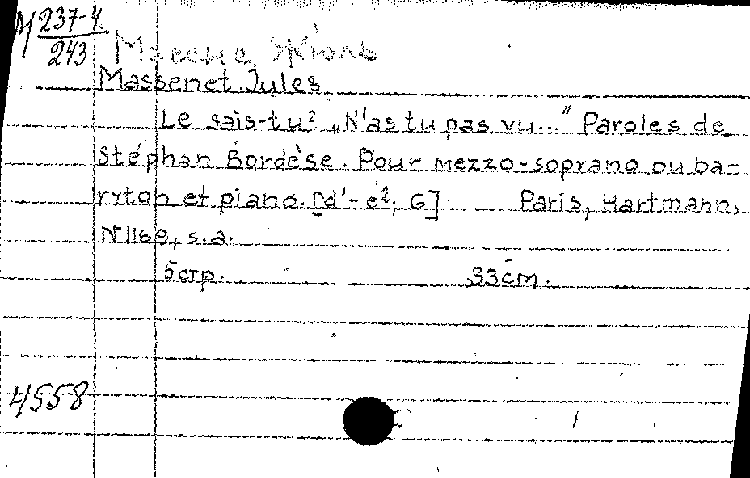 M 237-4
243
Массне Жюль
Massenet Jules
Le sais-tu? „N'as tu pas vu..." Paroles de
Stéphan Bordèse. Pour mezzo-soprano ou ba-
ryton et piano. [d'-e², G] Paris, Hartmann,
s.a.
5 стр. 33 cm.
4558